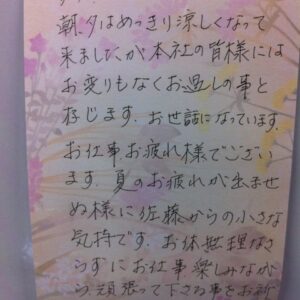 朝、夕はめっきり涼しくなって
来ましたが本社の皆様には
お変りもなくお過しの事と
存じます。お世話になっています。
お仕事お疲れ様でござい
ます。夏のお疲れが出ませ
ぬ様に佐藤からの小さな
気持です。お体無理なさ
らずにお仕事楽しみなが
ら頑張って下さる事をお祈